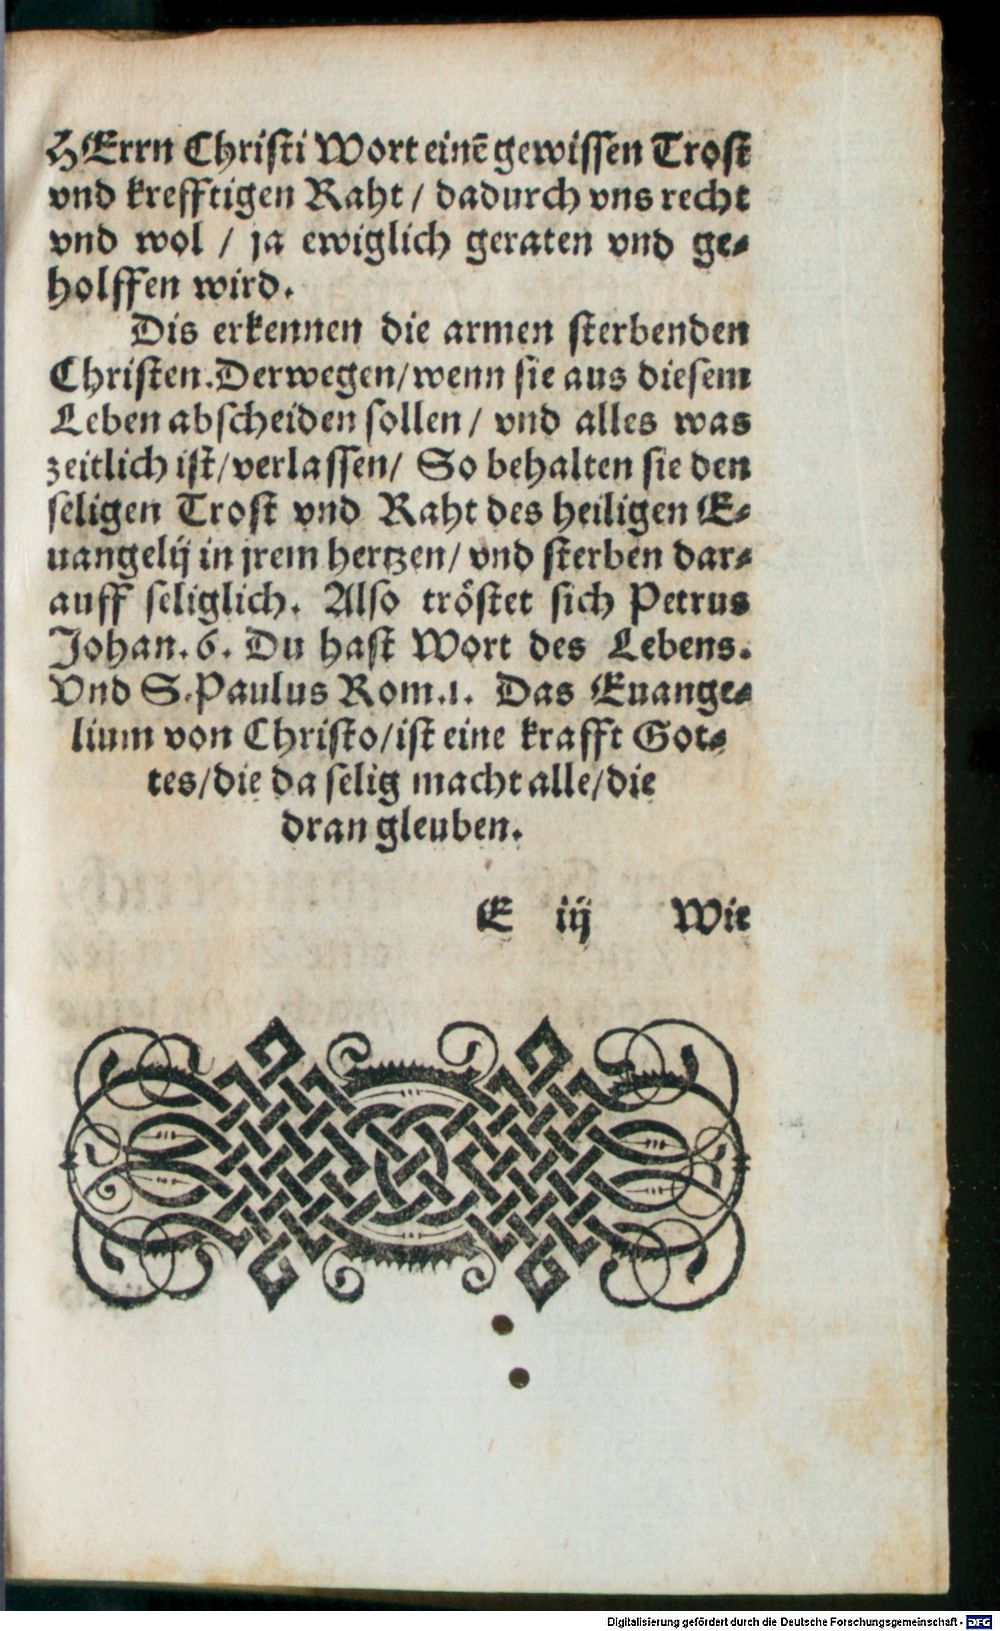 HErrn Christi Wort einē gewissen Trost
vnd krefftigen Raht / dadurch vns recht
vnd wol / ja ewiglich geraten vnd ge-
holffen wird.
Dis erkennen die armen sterbenden
Christen. Derwegen / wenn sie aus diesem
Leben abscheiden sollen / vnd alles was
zeitlich ist / verlassen / So behalten sie den
seligen Trost vnd Raht des heiligen E-
uangelij in jrem hertzen / vnd sterben dar-
auff seliglich. Also tröstet sich Petrus
Johan. 6. Du hast Wort des Lebens.
Vnd S. Paulus Rom. 1. Das Euange-
lium von Christo / ist eine krafft Got-
tes / die da selig macht alle / die
dran gleuben.
E iij Wie
Digitalisierung gefördert durch die Deutsche Forschungsgemeinschaft - DFG